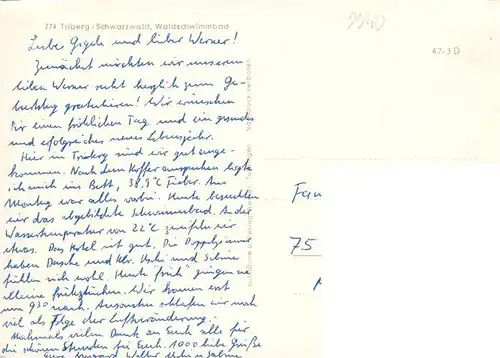 774 Triberg/Schwarzwald, Waldschwimmbad
Liebe Gisela und lieber Werner!
Zunächst möchten wir unserem
lieben Werner recht herzlich zum Ge-
burtstag gratulieren! Wir wünschen
Dir einen fröhlichen Tag und ein gesundes
und erfolgreiches neues Lebensjahr.
Hier in Triberg sind wir gut ange-
kommen. Nach dem Koffer auspacken legte
ich mich ins Bett, 38,9°C Fieber. Am
Montag war alles vorbei. Heute besuchten
wir das abgebildete Schwimmbad. An der
Wassertemperatur von 22°C zweifeln wir
etwas. Das Hotel ist gut. Die Doppelzimmer
haben Dusche und Klo. Uschi und Sabine
fühlen sich wohl. Heute "früh" gingen sie
alleine frühstücken. Wir kamen erst
um 930 nach. Ansonsten schlafen wir noch
viel als Folge der Luftveränderung.
Nochmals vielen Dank an Euch alle für
die schönen Stunden bei Euch. 1000 liebe Grüße
Eure Walter Uschi u Sabine
47-3 D
Nachdruck verboten
Fam
75